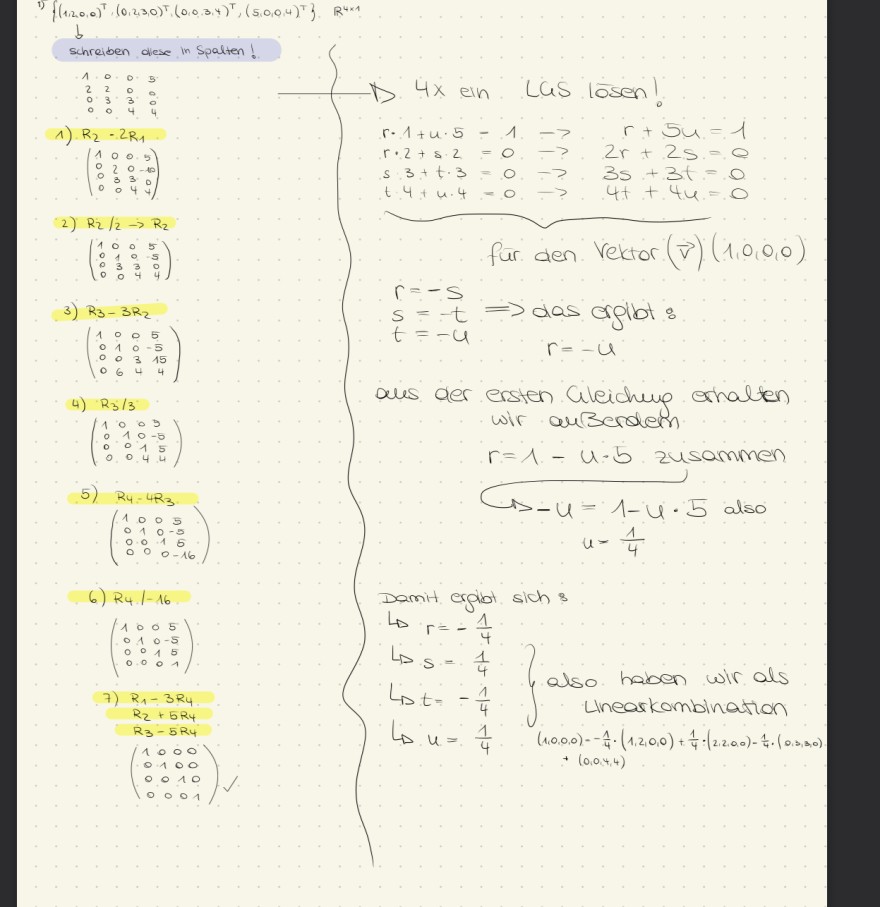 1) {(1,2,0,0)ᵀ, (0,2,3,0)ᵀ, (0,0,3,4)ᵀ, (5,0,0,4)ᵀ}. R⁴ˣ¹
↓
schreiben diese in Spalten!
1 0 0 5
2 2 0 0
0 3 3 0
0 0 4 4
1) R2 - 2R1
1 0 0 5
0 2 0 -10
0 3 3 0
0 0 4 4
2) R2/2 -> R2
1 0 0 5
0 1 0 -5
0 3 3 0
0 0 4 4
3) R3 - 3R2
1 0 0 5
0 1 0 -5
0 0 3 15
0 6 4 4
4) R3/3
1 0 0 5
0 1 0 -5
0 0 1 5
0 0 4 4
5) R4 - 4R3
1 0 0 5
0 1 0 -5
0 0 1 5
0 0 0 -16
6) R4/-16
1 0 0 5
0 1 0 -5
0 0 1 5
0 0 0 1
7) R1 - 3R4
R2 + 5R4
R3 - 5R4
1 0 0 0
0 1 0 0
0 0 1 0
0 0 0 1 ✓
4x ein LGS lösen!
r·1 + u·5 = 1 -> r + 5u = 1
r·2 + s·2 = 0 -> 2r + 2s = 0
s·3 + t·3 = 0 -> 3s + 3t = 0
t·4 + u·4 = 0 -> 4t + 4u = 0
für den Vektor (v⃗) (1,0,0,0)
r = -s
s = -t => das ergibt:
t = -u
r = -u
aus der ersten Gleichung erhalten
wir außerdem
r = 1 - u·5 zusammen
-u = 1 - u·5 also
u = 1/4
Damit ergibt sich:
↳ r = - 1/4
↳ s = 1/4
↳ t = - 1/4
↳ u = 1/4
also haben wir als
Linearkombination
(1,0,0,0) = -1/4·(1,2,0,0) + 1/4·(2,2,0,0) - 1/4·(0,3,3,0)
+ (0,0,4,4)